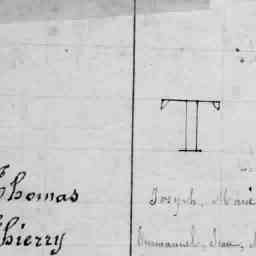 T
Thomas
Thierry
Joseph, Marie
Emmanuel, Jean,